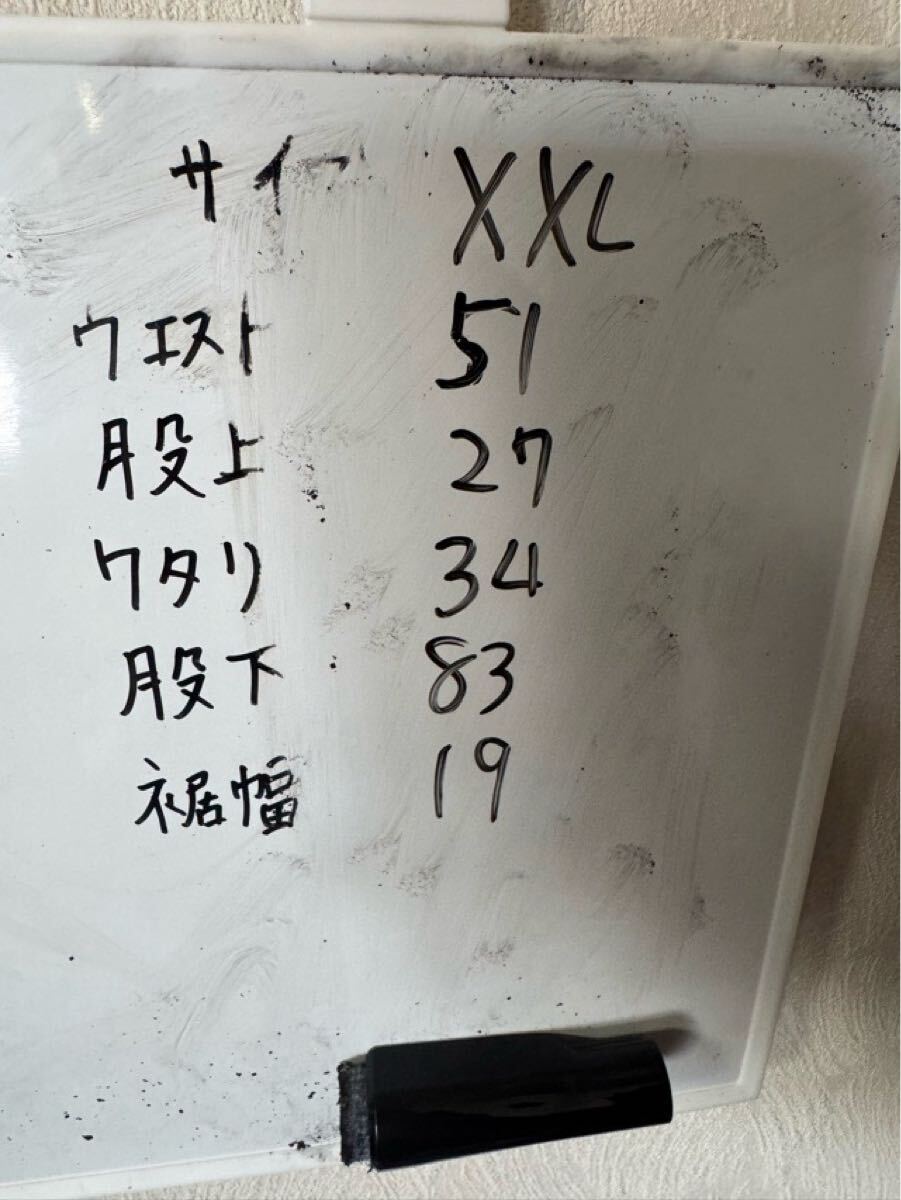 サイ XXL
ウエスト 51
股上 27
ワタリ 34
股下 83
裾幅 19